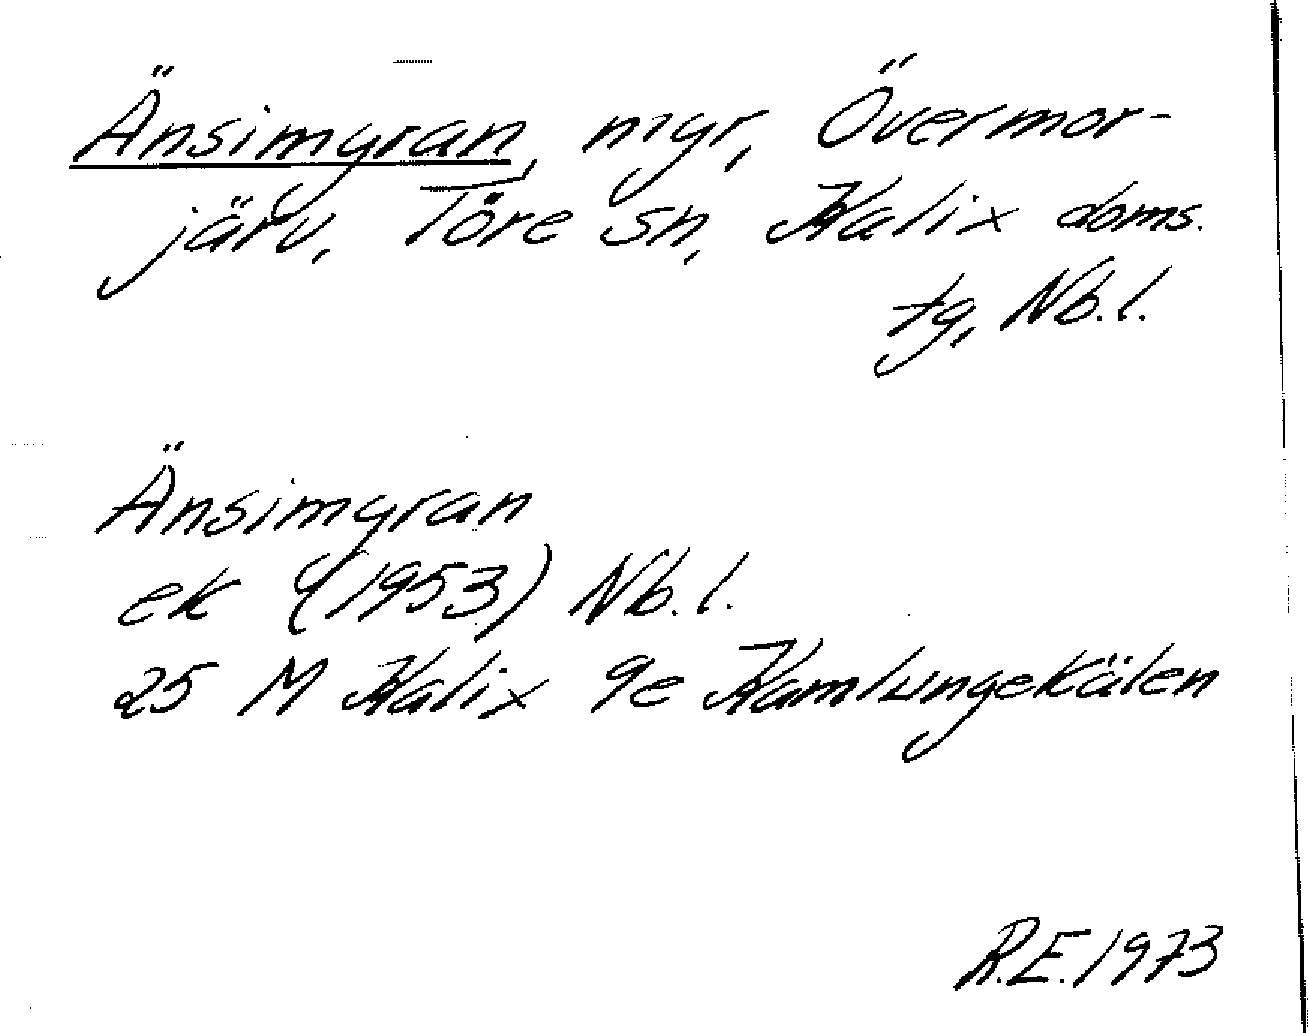 Änsimyran, myr, Övermor-
järv, Töre sn, Kalix doms.
tg, Nb.l.
Änsimyran
ek (1953) Nb.l.
25 M Kalix 9e Kamlungekälen
R.E. 1973